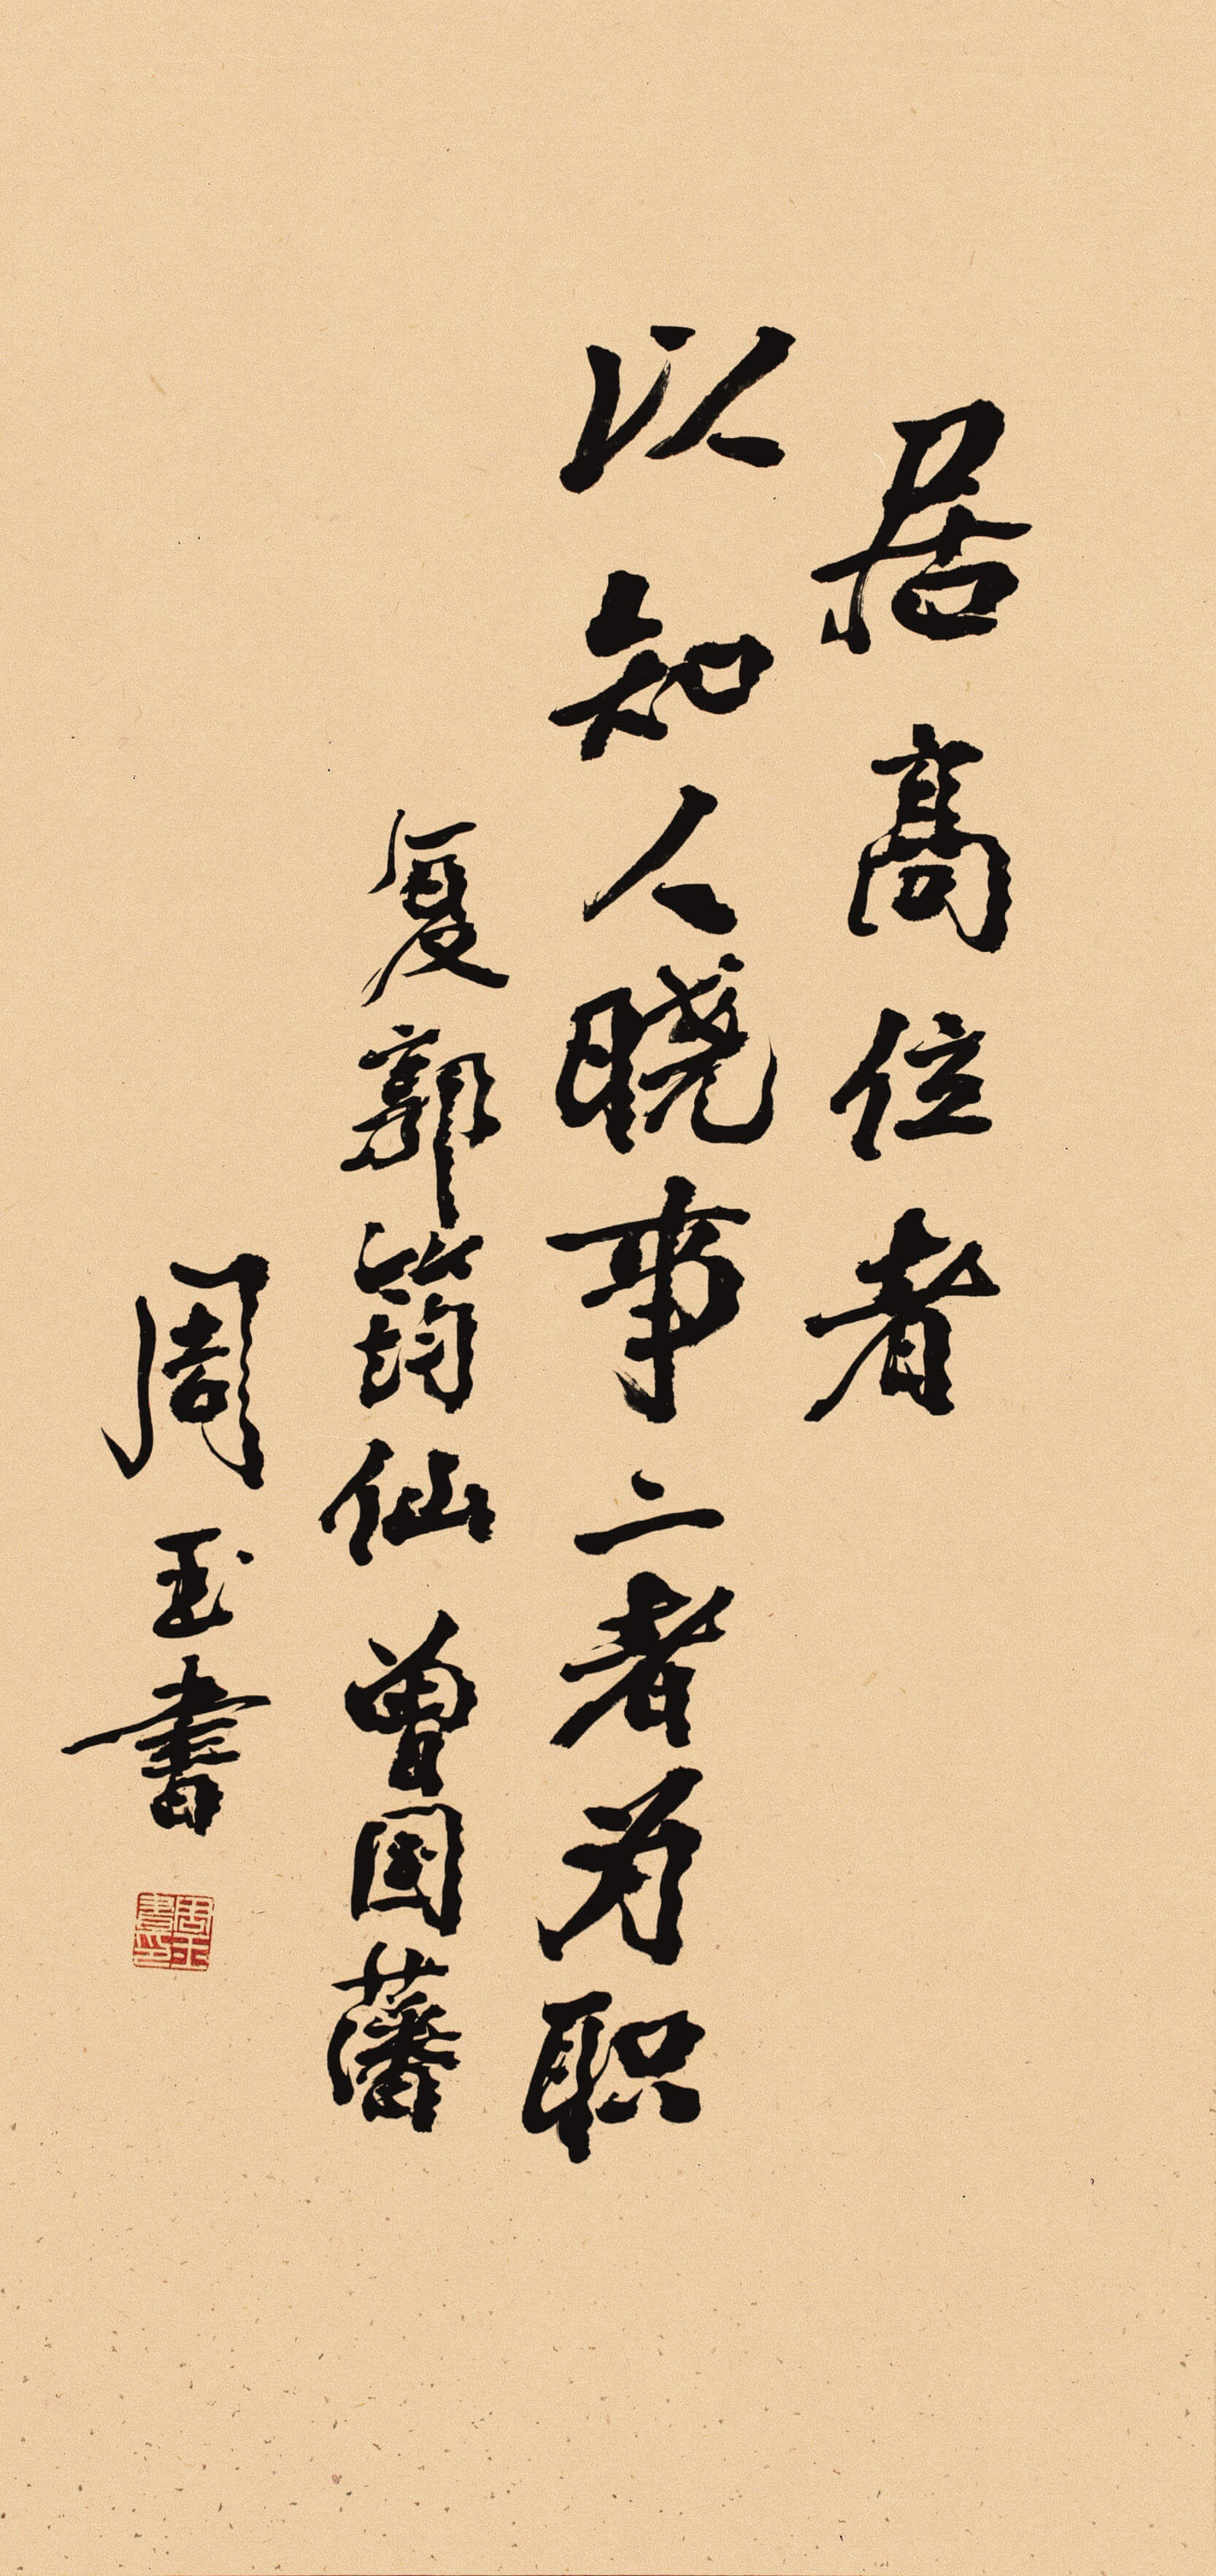 居高位者
以知人晓事二者为职
复郭筠仙 曾国藩
周玉書
周玉書印